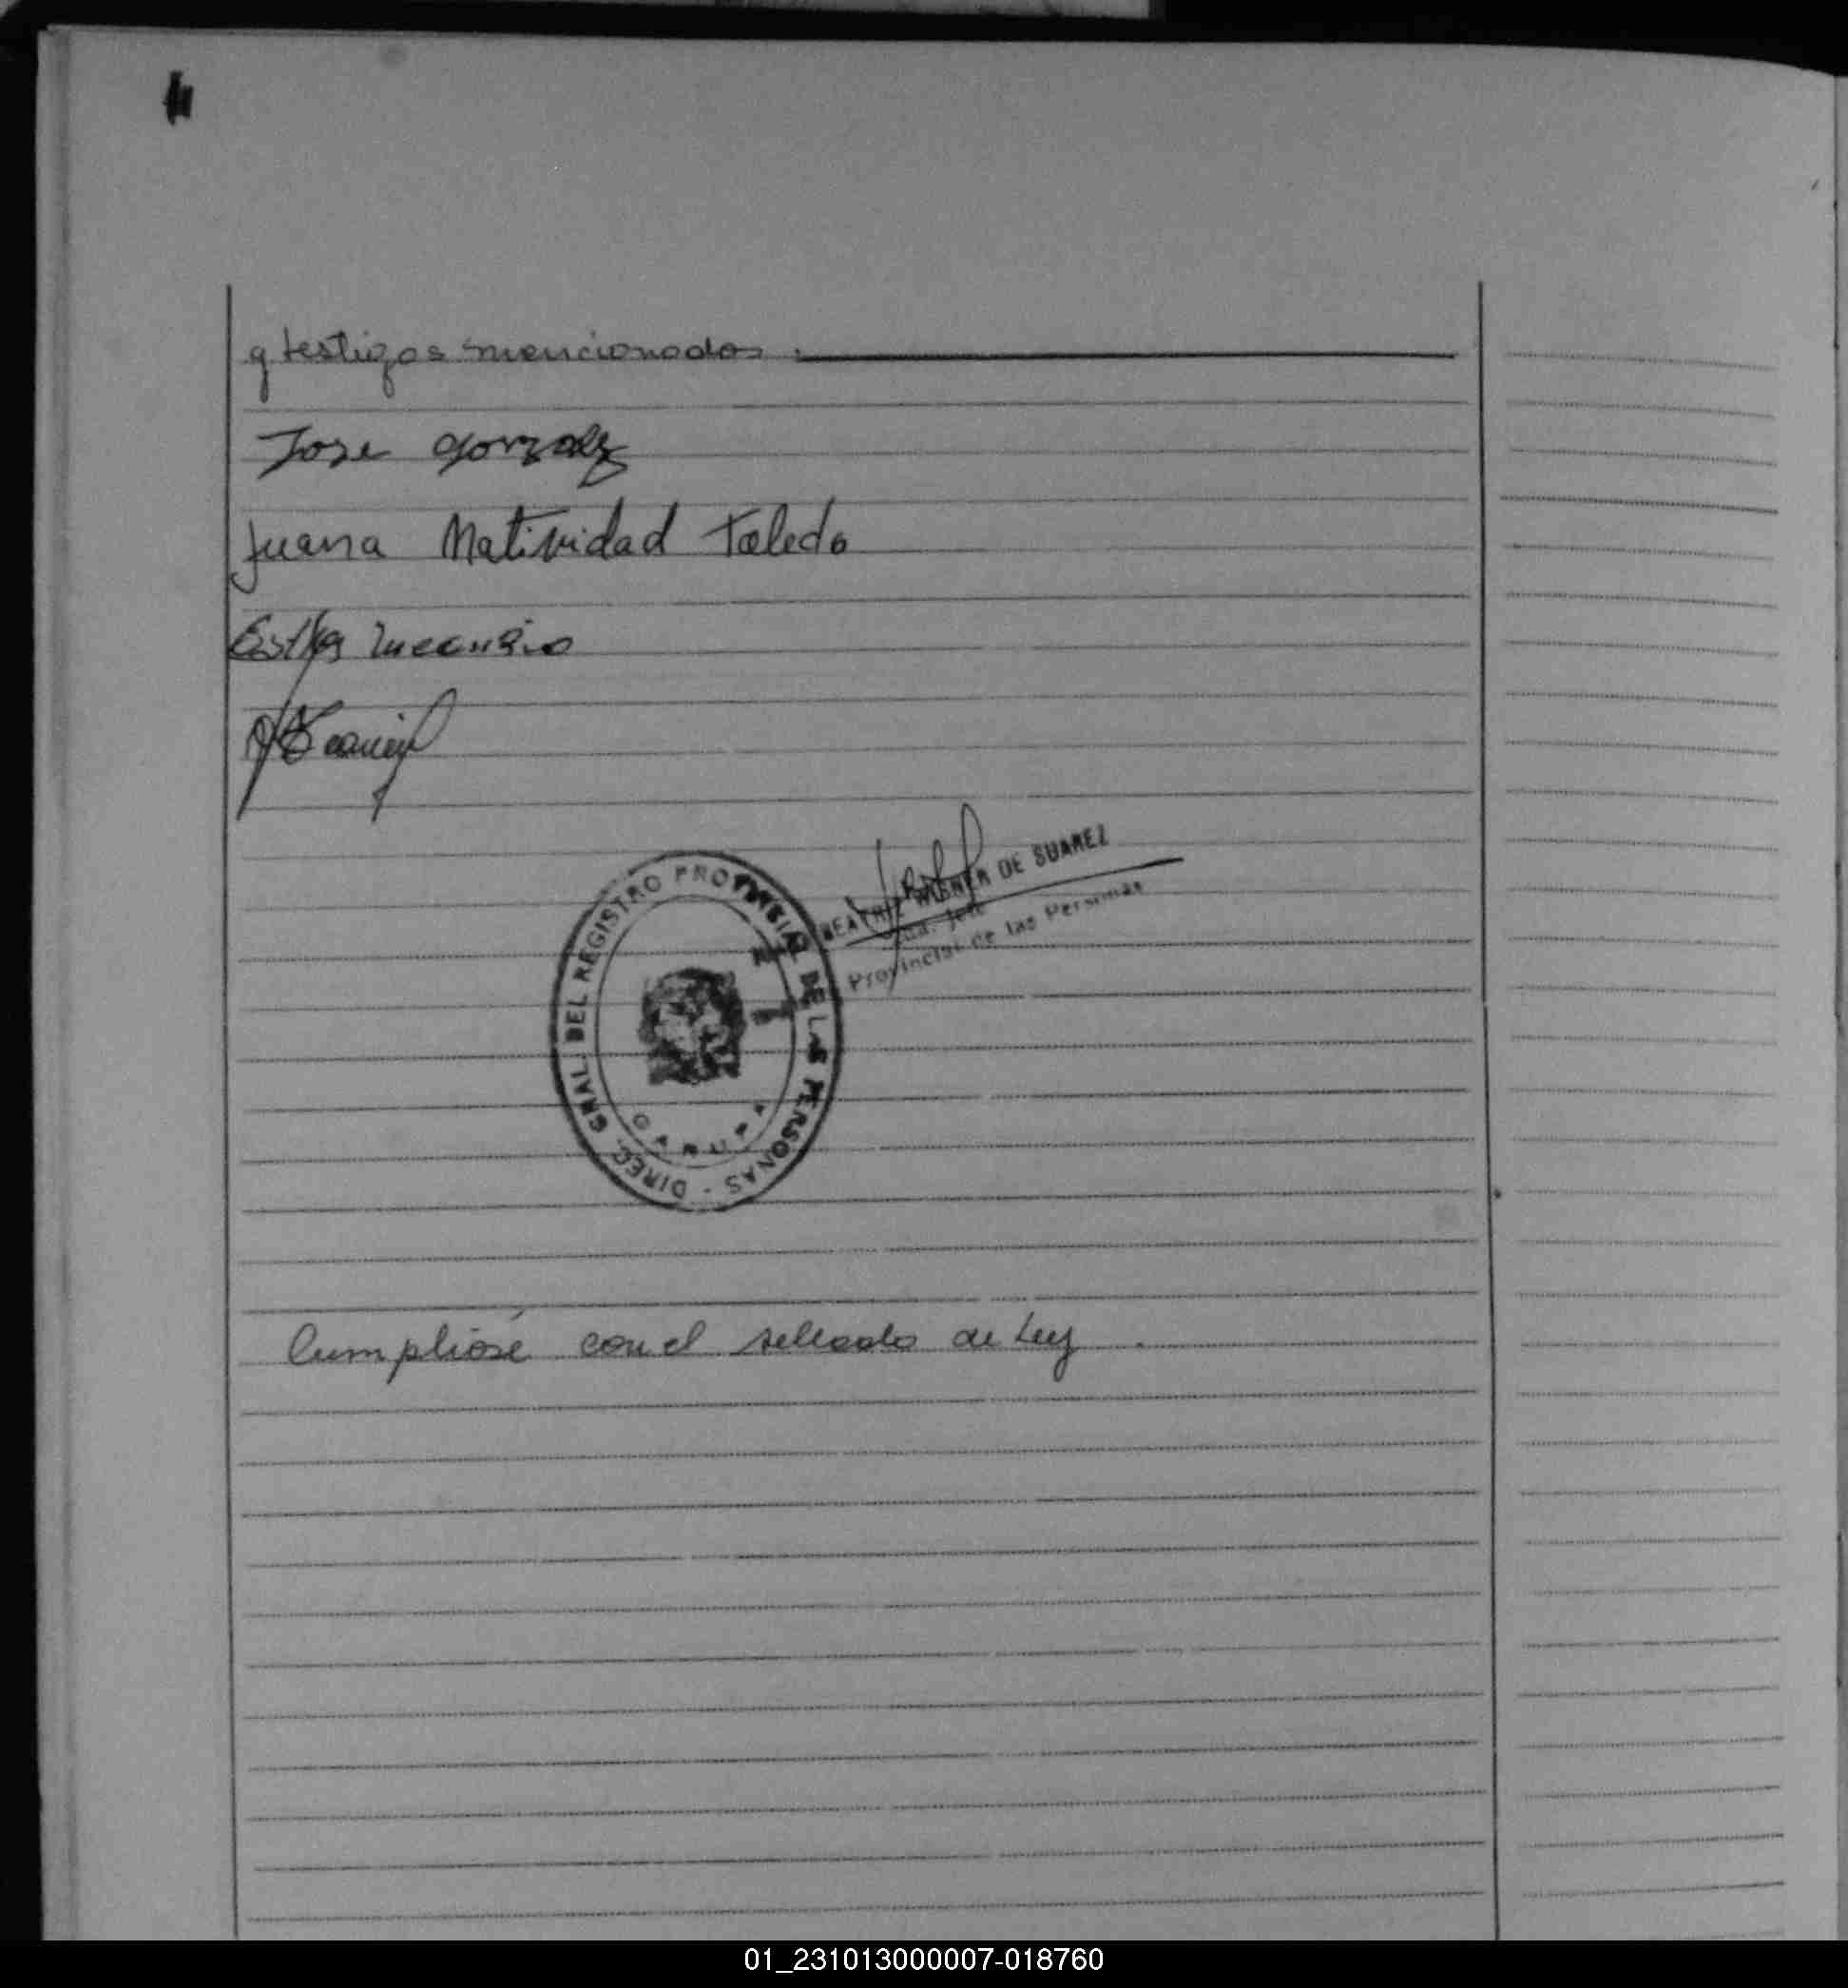 y testigos mencionados.
Jose Gonzalez
Juana Natividad Toledo
DIREC. GRAL. DEL REGISTRO PROVINCIAL DE LAS PERSONAS -
GARUPA
BEATRIZ WAGNER DE SUAREZ
Jefe
Provincial de las Personas
Cumpliose con el sellado de Ley.
01_231013000007-018760